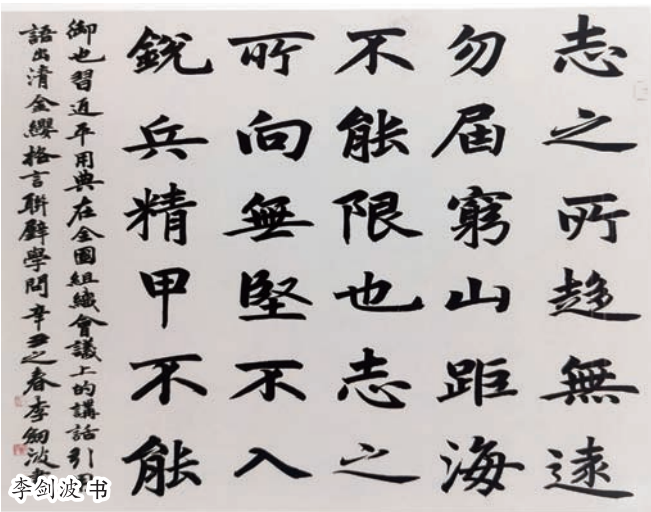 志之所趍無遠
勿届窮山距海
不能限也志之
所向無堅不入
銳兵精甲不能
御也習近平用典在全國組織會議上的講話引
語出清金纓格言聯璧學問辛丑之春李劒波
李剑波 书